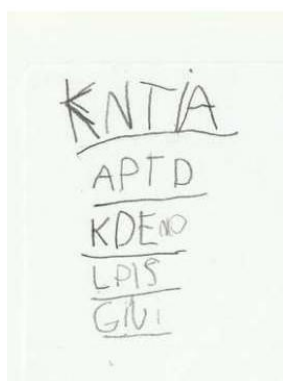 KNTIA
APTD
KDENO
LPIS
GIVI